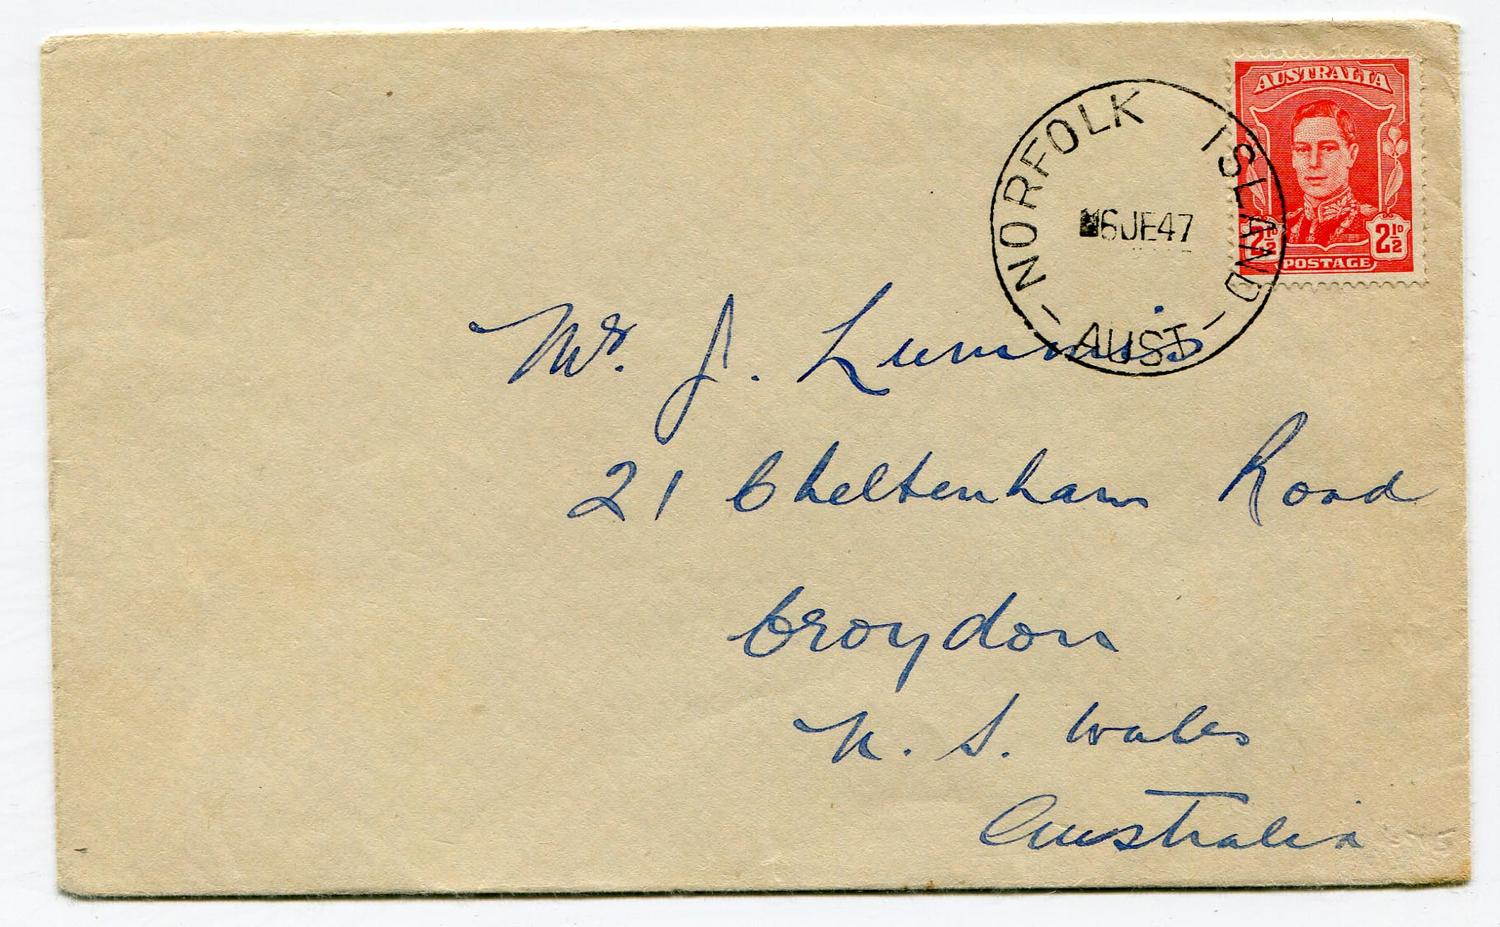 AUSTRALIA
2½D 2½D
POSTAGE
NORFOLK ISLAND
6JE47
AUST
Mr. J. Lummis
21 Cheltenham Road
Croydon
N. S. Wales
Australia